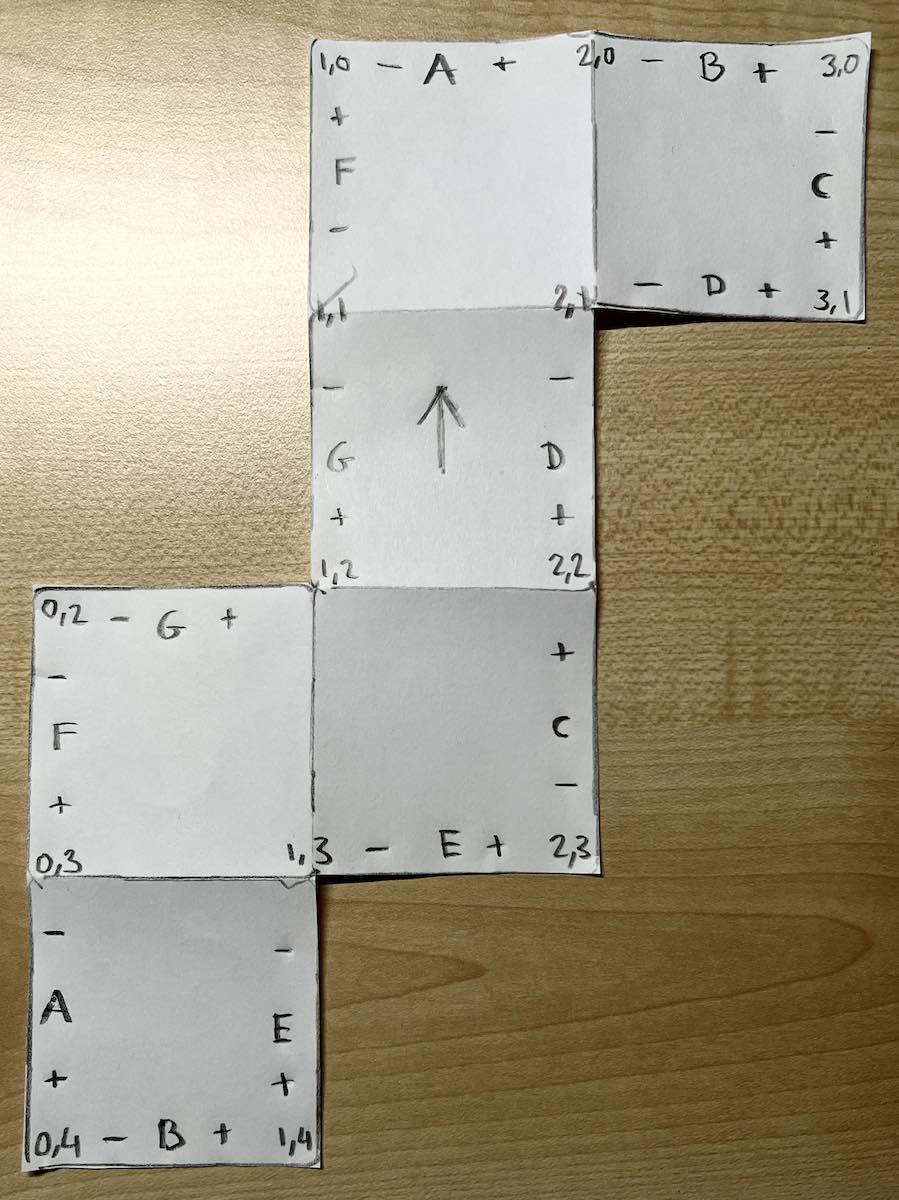 1,0 - A + 2,0 - B + 3,0
+ -
F C
- +
1,1 2,1 - D + 3,1
- -
G D
+ +
1,2 2,2
0,2 - G + +
-
F C
+ -
0,3 1,3 - E + 2,3
- -
A E
+ +
0,4 - B + 1,4